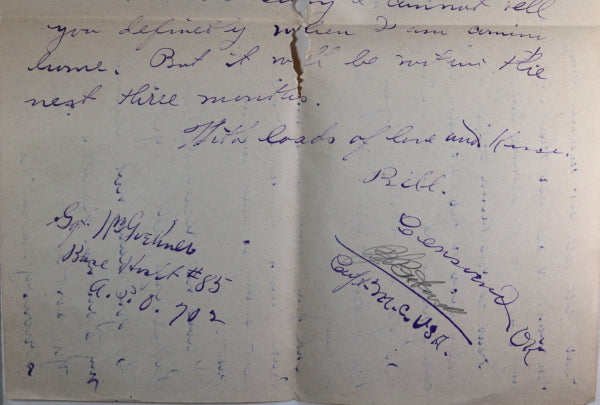 I cannot tell
you definitely when I am comin
home. But it will be within the
next three months.
With loads of love and Kisses
Bill.
Sgt. Wm
Base Hosp't #85
A.P.O. 702
Censored OK
Capt. M.C. USA.